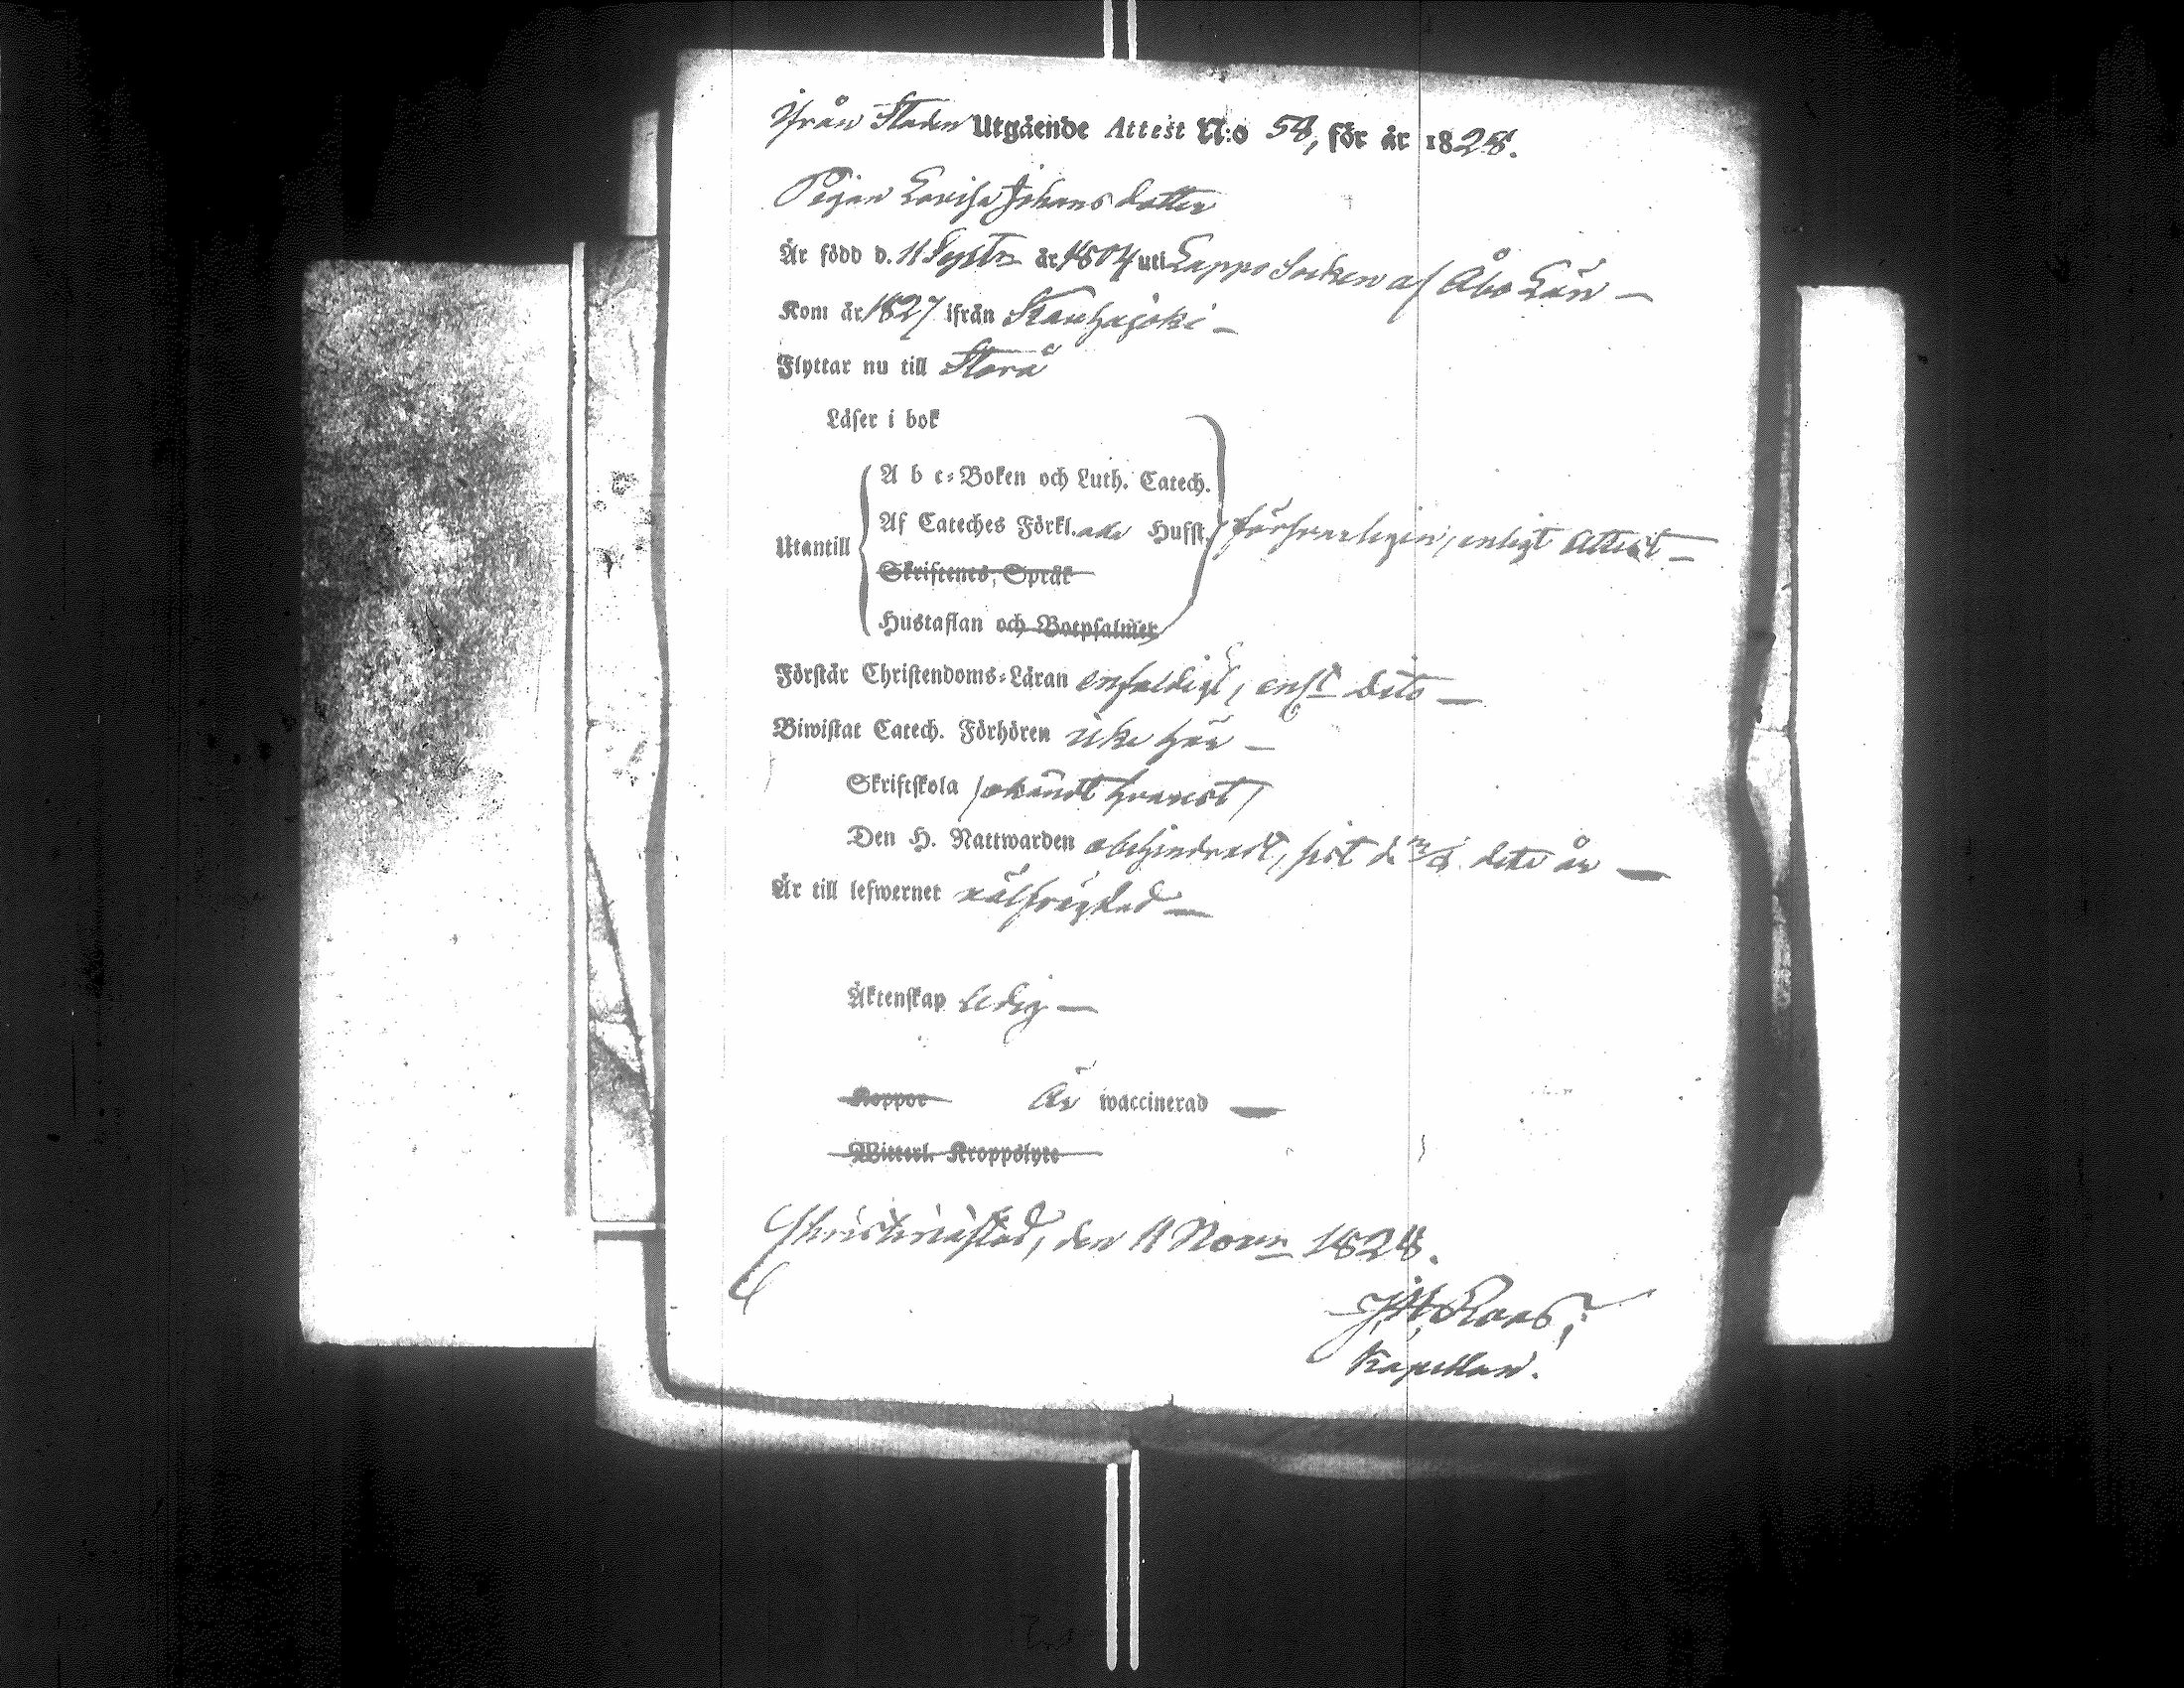 ifrån Staden Utgående Attest N:o 58, för år 1828.
Pigan Lovisa Johans dotter
Är född d. 11 Septr år 1804 uti Lappo Socken af Åbo Län —
Kom år 1827 ifrån Kauhajoki —
Flyttar nu till Storå
Läser i bok
A b c-Boken och Luth. Catech.
Af Cateches Förkl. Hufst. försvarligen, enligt Attest —
Utantill
Skriftenes, Språk
Hustaflan och Botpsalmer
Förstår Christendoms-Läran enfaldigt, enl. dito —
Biwistat Catech. Förhören icke här —
Skriftskola
Den H. Nattwarden obehindradt, sist d. detta år —
Är till lefwernet välfräjdad —
Äktenskap ledig —
Koppor Är waccinerad —
Witterl. Kroppslyte
Christinæstad, den 11 Novr 1828.
Kapellan.